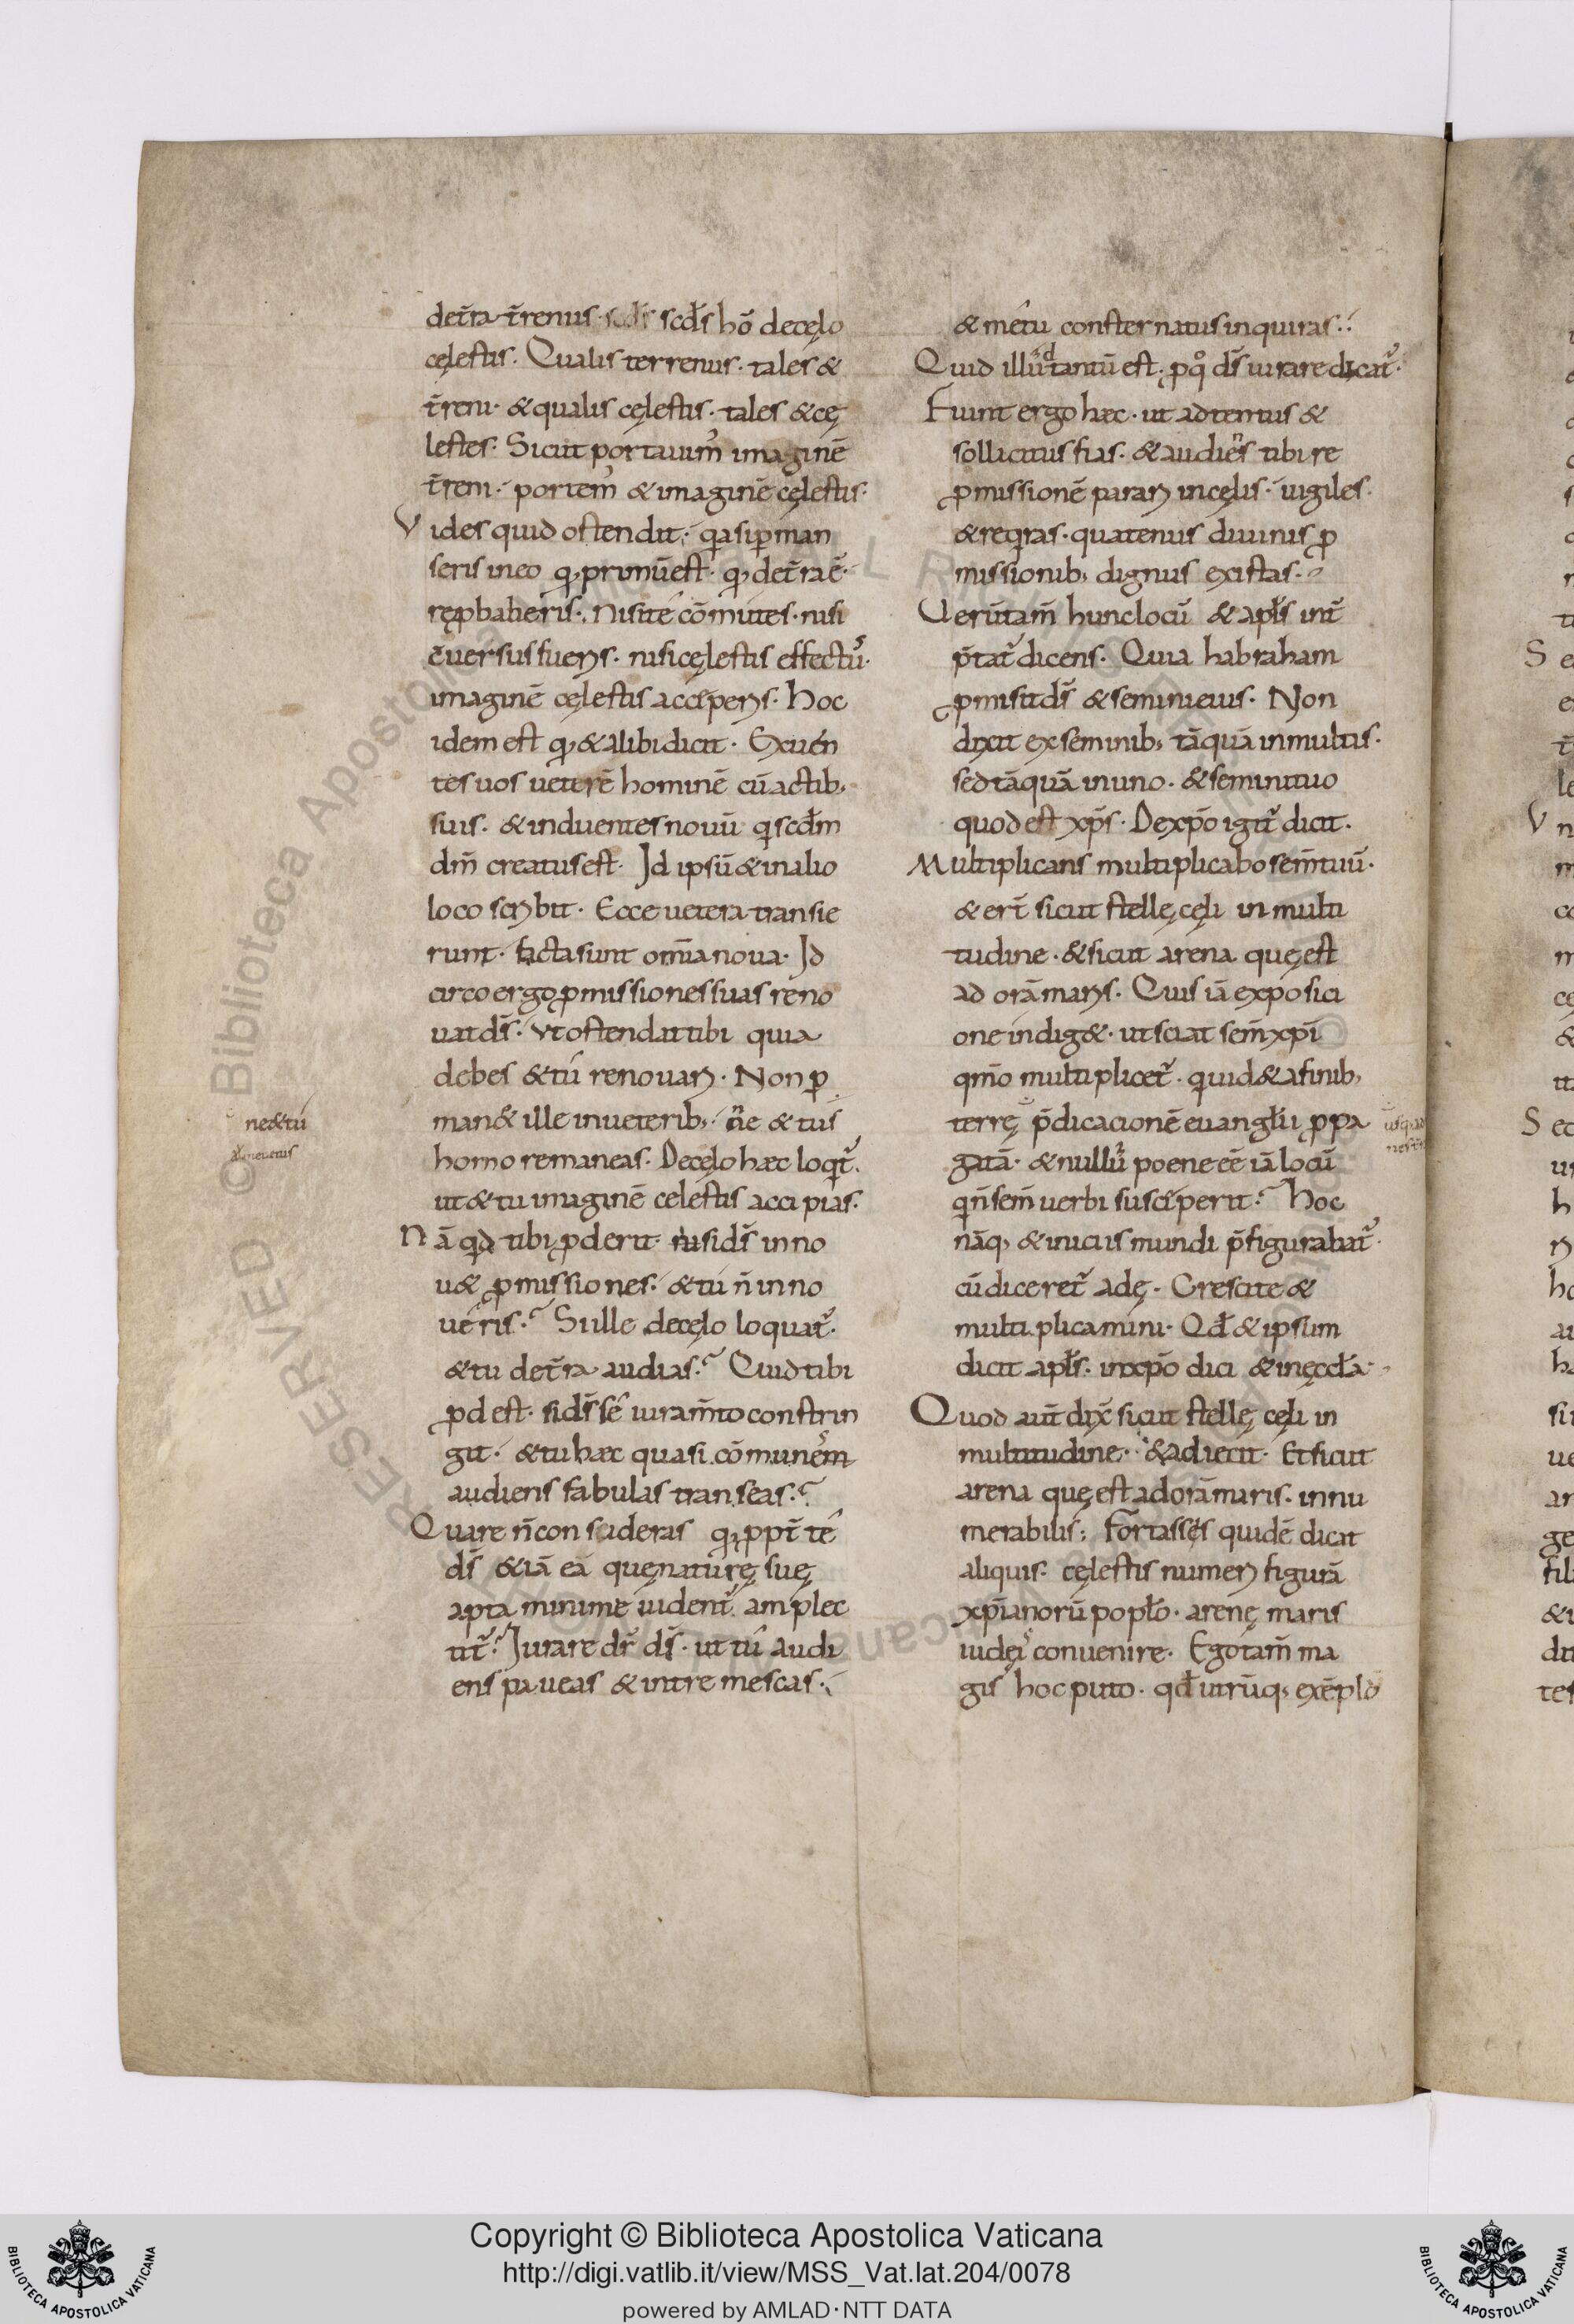 det̄ra t̄renus· scd̄s hō decęlo
cęlestis· Qualis terrenus· tales &
t̄reni· & qualis cęlestis· tales & cę
lestes· Sicut portauim᷒ imaginē
t̄reni· portem᷒ & imaginē cęlestis·
Vides quid ostendit; qa si ꝑman
seris in eo qđ primū est· qđ det̄ra ē·
reꝓbaberis·; nisi té cōmutes· nisi
cuersus fueris· nisi cęlestis effectus·
imaginē cęlestis accéperis· Hoc
idem est qđ & alibi dicit· Exuén
tes uos ueterē hominē cū actib;
suis· & induentes nouū qi scd̄m
dm̄ creatus est· Id ipsū & in alio
loco scribit· Ecce uetera transie
runt· facta sunt om̄ia noua· Id
circo ergo ꝓmissiones suas reno
uat ds̄· Vt ostendat tibi quia
debes & tú renouari· Non ꝑ
man& ille in ueterib; ne & tu
homo remaneas· Decęlo hæc loqt̄·
ut & tu imaginē celestis accipias·
Nā qd tibi ꝓderit· si ds̄ inno
u& ꝓmissiones· & tú n̄ inno
uéris· Si ille decęlo loquat̄·
& tu det̄ra audias· Quid tibi
ꝓdest· si ds̄ sé iuram̄to constrin
git· & tu hæc quasi cōmunem
audiens fabulas transeas·
Quare n̄ consideras qđ ꝓpt̄ té
ds̄ &iā ea quę naturę suę
apta minime uident̄ amplec
tit̄· Iurare dr̄ ds̄· ut tú audi
ens paueas & intremescas·
ne&tú
& métu consternatus inquiras·
Quid illud tantū est· ꝓ qo ds̄ iurare dicat̄·
Fiunt ergo hæc· ut adtentus &
sollicitus fias· & audiens tibi re
ꝓmissionē parari in cęlis· uigiles·
& reqiras· quatenus diuinis ꝓ
missionib; dignus existas·
Uerūtam̄ hunc locū & apl̄s int̄
p̄tat̄ dicens· Quia habraham
ꝓmisit ds̄ & semini eius· Non
dixit ex seminib; tāquā in multis·
sed tāquā in uno· & semini tuo
quod est xp̄s· De xp̄o igit̄ dicit·
Multiplicans multiplicabo sem̄ tuū·
& ert̄ sicut stellę cęli in multi
tudine· & sicut arena quę est
ad orā maris· Quis iā exposici
one indig&· ut sciat sem̄ xp̄i
qm̄o multiplicet̄· quid & a finib;
terrę p̄dicacionē euangl̄ii ꝓpa
gatā· & nullū poene eē iā locū
qi n̄ sem̄ uerbi suscéperit· Hoc
nāq; & iniciis mundi p̄figurabat̄·
cū diceret̄ adę· Crescite &
multiplicamini· Qd̄ & ipsum
dicit apl̄s· in xp̄o dici & in ęccl̄a·
Quod aut̄ dix̄ sicut stellę cęli in
multitudine· & adiecit· Et sicut
arena quę est ad orā maris· innu
merabilis; Fortasses quidē dicat
aliquis· cęlestis numeri figurā
xp̄ianorū popl̄o· arenę maris
iudęis conuenire· Ego tam̄ ma
gis hoc puto· qd̄ utrūq; exēplo
Copyright © Biblioteca Apostolica Vaticana
http://digi.vatlib.it/view/MSS_Vat.lat.204/0078
powered by AMLAD·NTT DATA
BIBLIOTECA APOSTOLICA VATICANA
BIBLIOTECA APOSTOLICA VATICANA